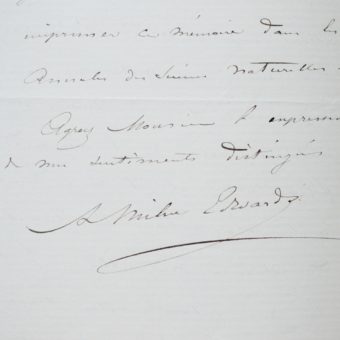 imprimer ce mémoire dans les
Annales des Sciences naturelles.
Agréez Monsieur l'expression
de mes sentiments distingués
A Milne Edwards